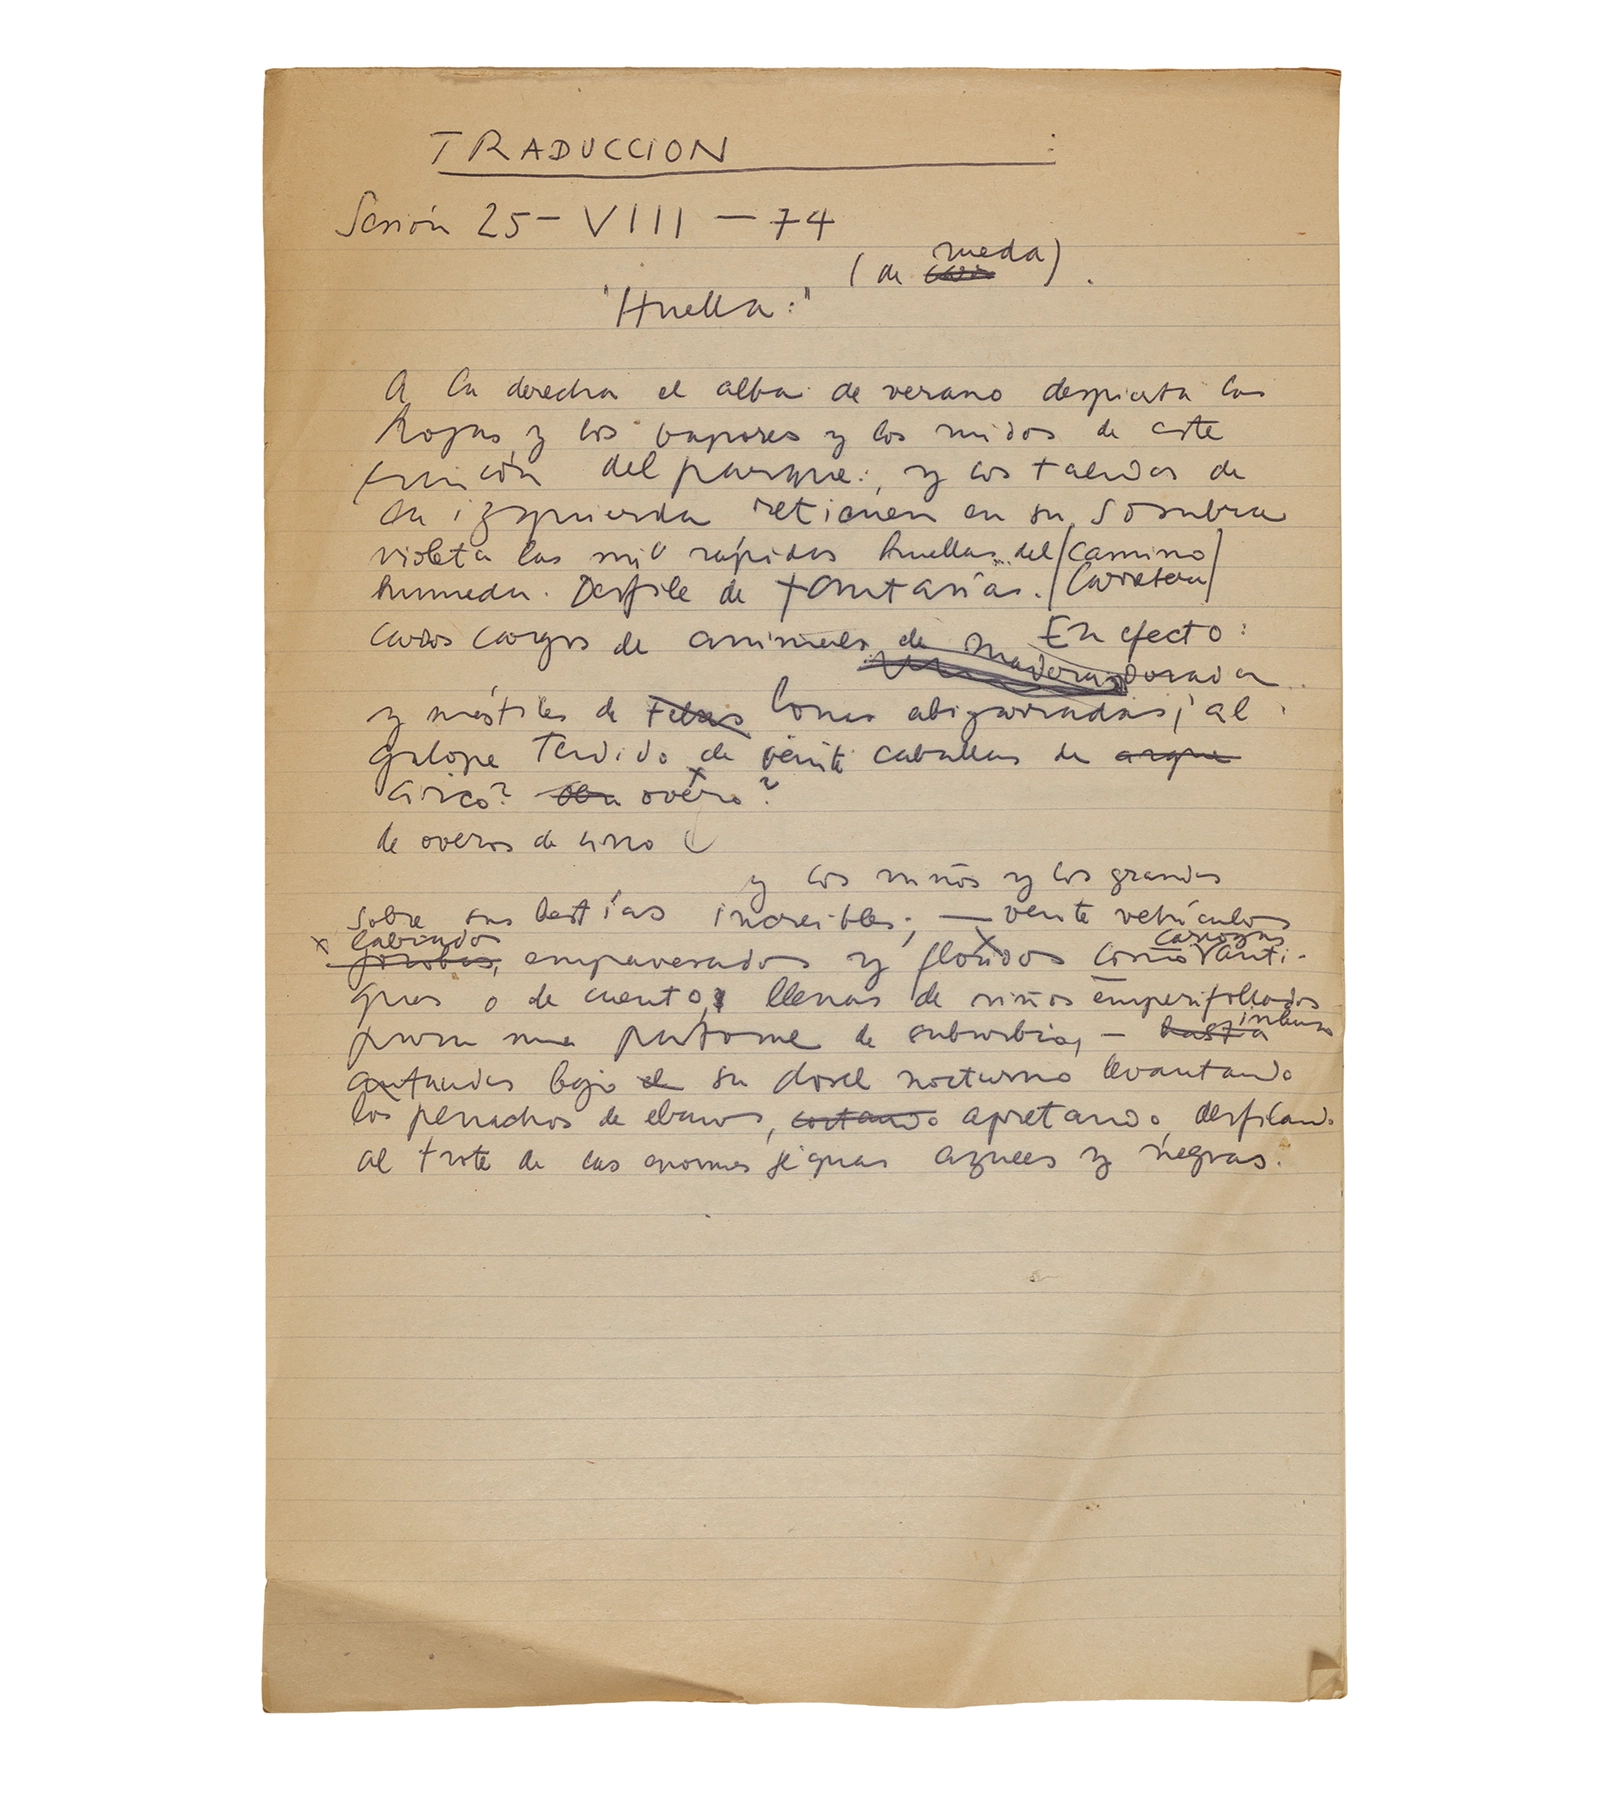 TRADUCCION :
Sesión 25 - VIII - 74
(de rueda).
"Huella:"
A la derecha el alba de verano despierta las
hojas y los vapores y los ruidos de este
rincón del parque:, y los taludes de
la izquierda retienen en su sombra
violeta las mil rápidas huellas del /camino/
humeda. Desfile de fantasías. /Carretera/
En efecto:
carros cargos de animales de madera dorada
y mástiles de telas lonas abigarradas; al
galope tendido de veinte caballos de
circo? overo?
de overos de circo
y los niños y los grandes
sobre sus bestías increibles; — veinte vehículos
x labrados carrozas
jorobas, empavesados y floridos como anti-
guas o de cuento, llenas de niños emperifollados
incluso
para una pastorale de suburbio, - hasta
ataudes bajo el su dosel nocturno levantando
los penachos de ebano, cortando apretando, desfilando
al trote de las enormes yeguas azules y negras.